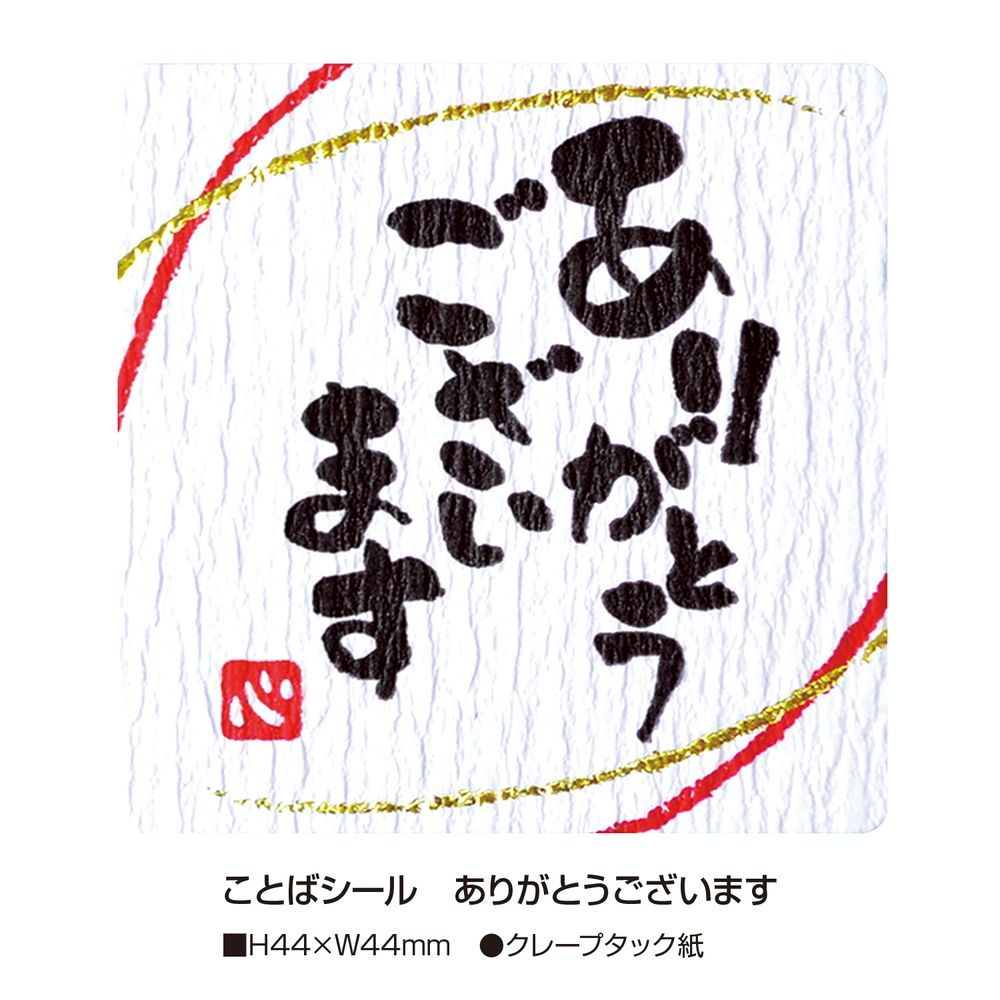 ありがとう
ございます
心
ことばシール　ありがとうございます
■H44×W44mm　●クレープタック紙